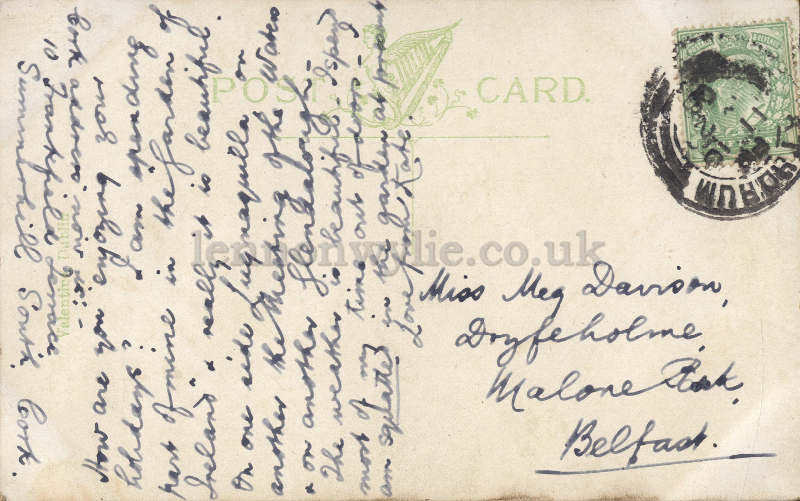 POST CARD.
How are you enjoying your
holidays? I am spending
part of mine in the "Garden of
Ireland" & really it is beautiful.
On one side Lugnaquilla on
another the Meeting of the Waters
& on another Glendalough -
The weather is beautiful - I spend
most of my time out of doors - I
am in the garden at present
Love from Kate.
Cork address now is:-
10
Summerhill South
Cork.
Valentine, Dublin
Miss Meg Davison,
Dryfeholme,
Malone Park,
Belfast.
AUGHRIM
lennonwylie.co.uk